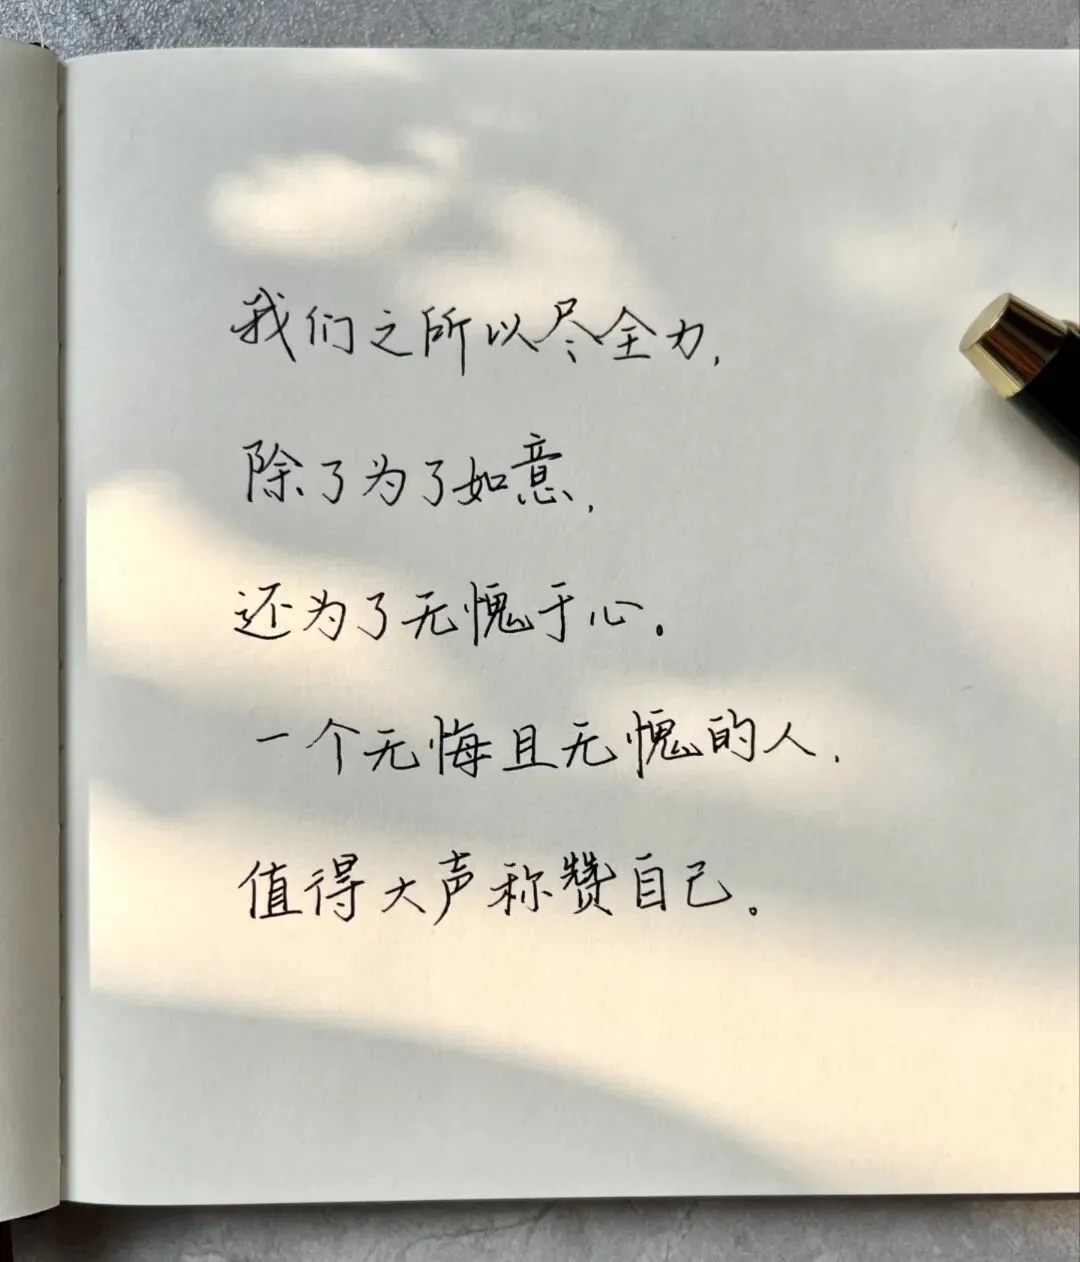 我们之所以尽全力，
除了为了如意，
还为了无愧于心。
一个无悔且无愧的人，
值得大声称赞自己。